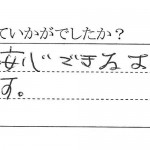 ていかがでしたか？
安心できるよ
す。